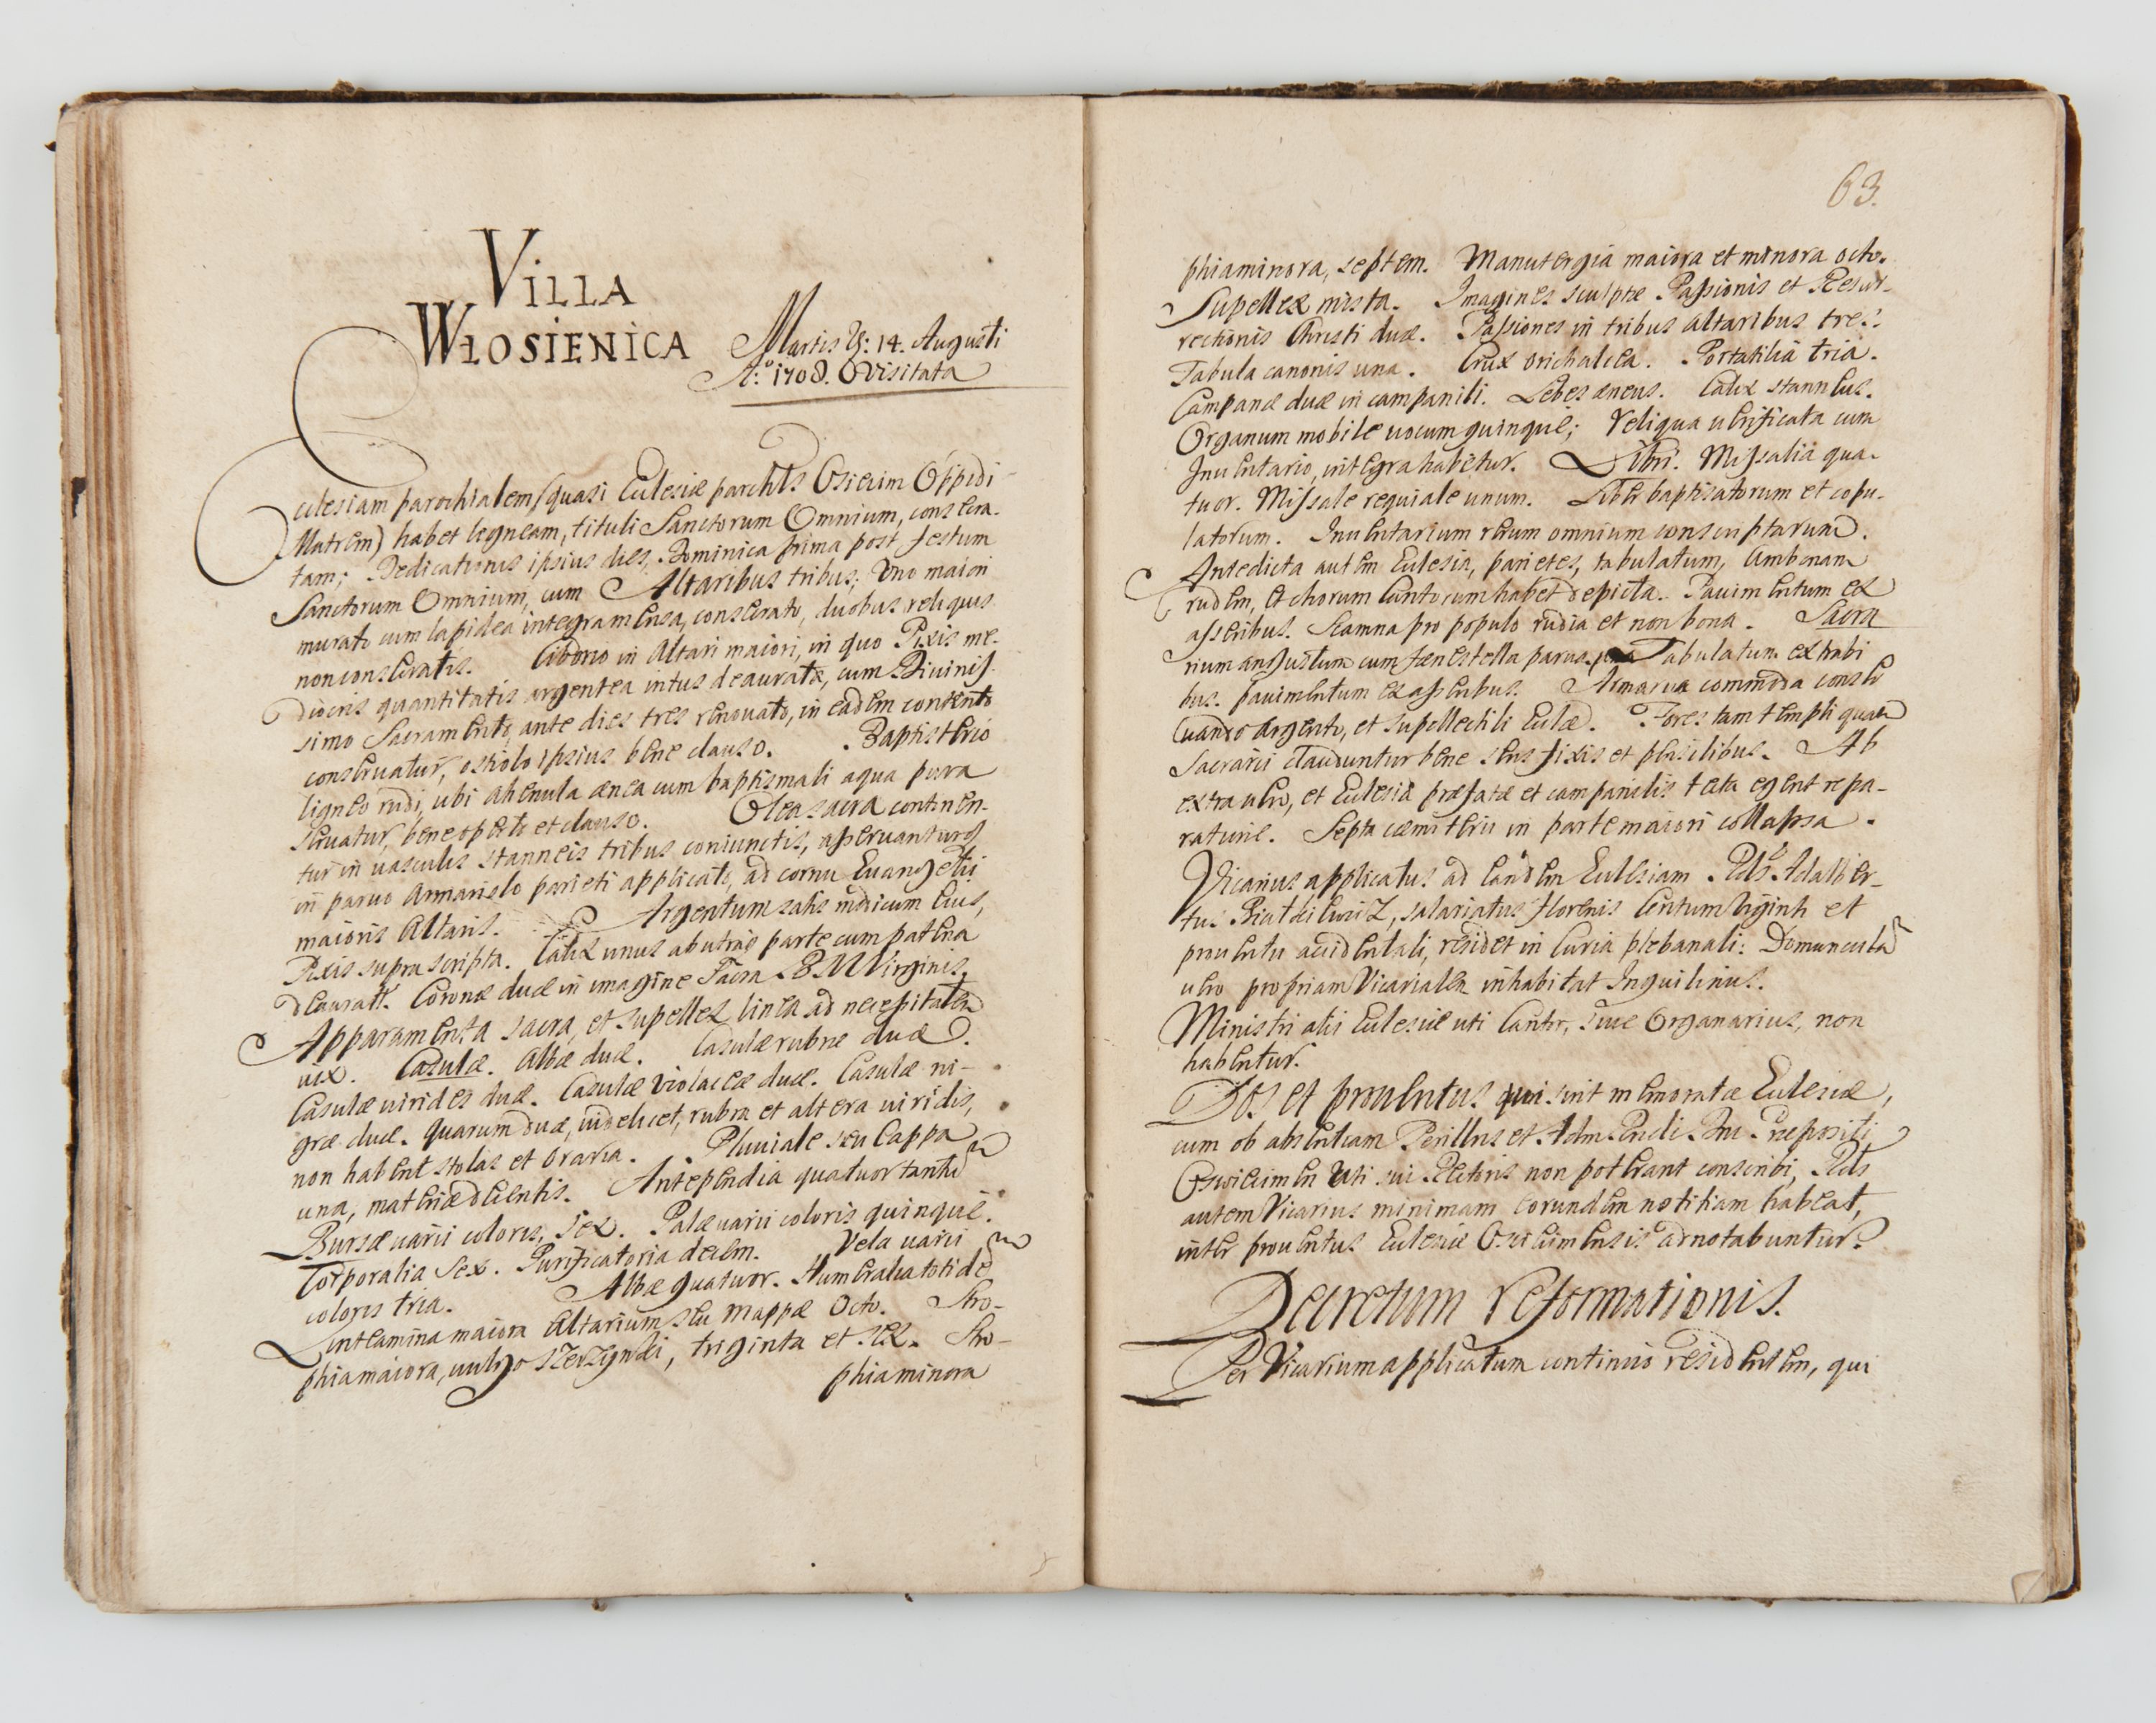 VILLA
WŁOSIENICA
Martis D: 14. Augusti
A:o 1708. Visitata
Ecclesiam parochialem (quasi Ecclesiæ parchlis Osiecim Oppidi
Matrem) habet ligneam, tituli Sanctorum Omnium, consecra-
tam; Dedicationis ipsius dies, Dominica prima post festum
Sanctorum Omnium, cum Altaribus tribus; Uno maiori
murato cum lapidea integra mensa, consecrato, duobus reliquis
non consecratis. Ciborio in Altari maiori, in quo Pixis me-
diocris quantitatis argentea intus deaurata, cum Divinis-
simo Sacramento, ante dies tres renovato, in eadem contento
conservatur, ostiolo ipsius bene clauso. Baptisterio
ligneo rudi, ubi ahenula ænea cum baptismali aqua pura
servatur, bene operto et clauso. Olea sacra continen-
tur in vasculis stanneis tribus coniunctis, asservantur
in parvo Armariolo parieti applicato, ad cornu Evangelii
maioris Altaris. Argentum satis modicum Eius,
Pixis supra scripta. Calix unus ab utraq parte cum patena
deaurat. Coronæ duæ in imagine Sacra B.M Virginis.
Apparamenta sacra, et supellex linea ad necessitatem
vix. Casulæ. Albæ duæ. Casulæ rubræ duæ.
Casulæ virides duæ. Casulæ violaceæ duæ. Casulæ ni-
græ duæ. quarum duæ, videlicet, rubra et altera viridis,
non habent stolas et oraria. Pluviale seu Cappa
una, materiæ decentis. Antependia quatuor tantu
Bursæ varii coloris, sex. Palæ varii coloris quinque.
Corporalia Sex. Purificatoria decem. Vela varii
coloris tria. Albæ quatuor. Humeralia totide
Linteamina maiora Altarium seu mappæ Octo. Stro-
phia maiora, vulgo szerzynki, triginta et sex. Stro-
phia minora
63.
phia minora, septem. Manutergia maiora et minora octo.
Supellex mista. Imagines sculptæ Passionis et Resur-
rectionis Christi duæ. Passiones in tribus Altaribus tres.
Tabula canonis una. Crux orichalcea. Portatilia tria.
Campanæ duæ in campanili. Lebes æneus. Calix stanneus.
Organum mobile vocum quinque; Reliqua verificata cum
Inventario, integra habetur. Libri. Missalia qua-
tuor. Missale requiale unum. Liber baptisatorum et copu-
latorum. Inventarium rerum omnium conscriptarum.
Antedicta autem Ecclesia, parietes, tabulatum, Ambonam
rudem, et chorum Cantorum habet depicta. Pavimentum ex
asseribus. Scamna pro populo rudia et non bona. Sacra
rium angustum cum fænestella parva. Tabulatum ex trabi
bus. pavimentum ex asseribus. Armaria commoda conser
vando Argento, et supellectili Eccłæ. Fores tam templi quam
Sacrarii clauduntur bene seris fixis et pensilibus. Ab
extra vero, et Ecclesiæ præfatæ et campanilis tecta egent repa-
ratione. Septa cæmiterii in parte maiori collapsa.
Vicarius applicatus ad eandem Ecclesiam Rds Adalber-
tus, salariatus florenis Centum Viginti et
proventu accidentali, residet in Curia plebanali: Domuncula
vero propriam Vicarialem inhabitat Inquilinus.
Ministri alii Ecclesiæ uti Cantor, sive Organarius, non
habentur.
Dos et proventus qui sint memoratæ Ecclesiæ,
cum ob absentiam Perillris et Adm. Rndi Dni Præpositi
Oswiecimen uti sui Rectoris non poterant conscribi, Rds
autem Vicarius minimam eorundem notitiam habeat,
inter proventus Ecclesiæ Osviecimensis adnotabuntur.
Decretum reformationis.
Per Vicarium applicatum continuo residentem, qui